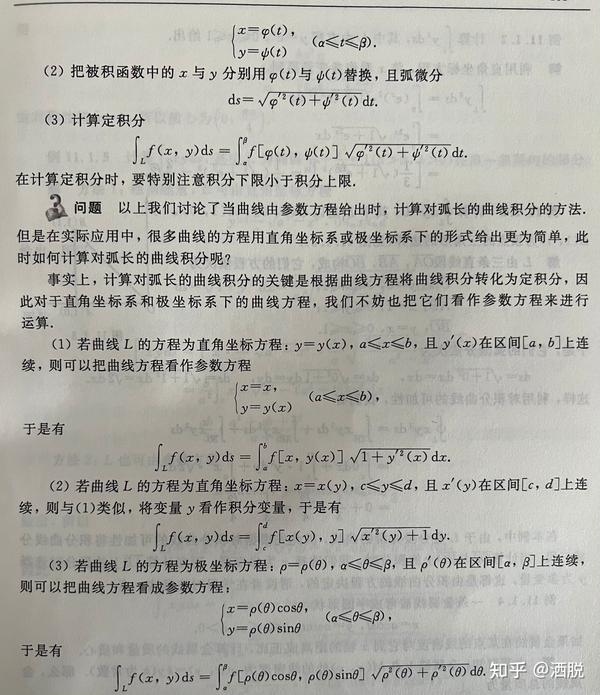 {x=φ(t), y=ψ(t) (α≤t≤β).
(2) 把被积函数中的 x 与 y 分别用 φ(t)与 ψ(t)替换，且弧微分
ds=√(φ′²(t)+ψ′²(t))dt.
(3) 计算定积分
∫_L f(x, y)ds=∫_α^β f[φ(t), ψ(t)] √(φ′²(t)+ψ′²(t))dt.
在计算定积分时，要特别注意积分下限小于积分上限.
问题 以上我们讨论了当曲线由参数方程给出时，计算对弧长的曲线积分的方法.
但是在实际应用中，很多曲线的方程用直角坐标系或极坐标系下的形式给出更为简单，此
时如何计算对弧长的曲线积分呢?
事实上，计算对弧长的曲线积分的关键是根据曲线方程将曲线积分转化为定积分，因
此对于直角坐标系和极坐标系下的曲线方程，我们不妨也把它们看作参数方程来进行
运算.
(1) 若曲线 L 的方程为直角坐标方程：y=y(x)，a≤x≤b，且 y′(x)在区间[a，b]上连
续，则可以把曲线方程看作参数方程
{x=x, y=y(x) (a≤x≤b),
于是有
∫_L f(x, y)ds=∫_a^b f[x, y(x)] √(1+y′²(x))dx.
(2) 若曲线 L 的方程为直角坐标方程：x=x(y)，c≤y≤d，且 x′(y)在区间[c，d]上连
续，则与(1)类似，将变量 y 看作积分变量，于是有
∫_L f(x, y)ds=∫_c^d f[x(y), y] √(x′²(y)+1)dy.
(3) 若曲线 L 的方程为极坐标方程：ρ=ρ(θ)，α≤θ≤β，且 ρ′(θ)在区间[α，β]上连续，
则可以把曲线方程看成参数方程：
{x=ρ(θ)cosθ, y=ρ(θ)sinθ (α≤θ≤β),
于是有
∫_L f(x, y)ds=∫_α^β f[ρ(θ)cosθ, ρ(θ)sinθ] √(ρ²(θ)+ρ′²(θ))dθ.
知乎 @洒脱